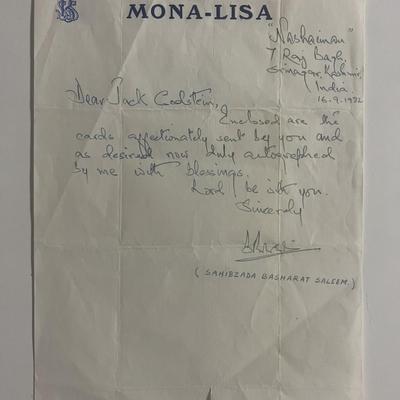 MONA-LISA
"Nashaiman"
7 Raj Bagh,
Srinagar, Kashmir,
India.
16.9.1982
Dear Jack Godstein,
Enclosed are the
cards affectionately sent by you and
as desired now duly autographed
by me with blessings.
Lord be with you.
Sincerely
( SAHIBZADA BASHARAT SALEEM.)